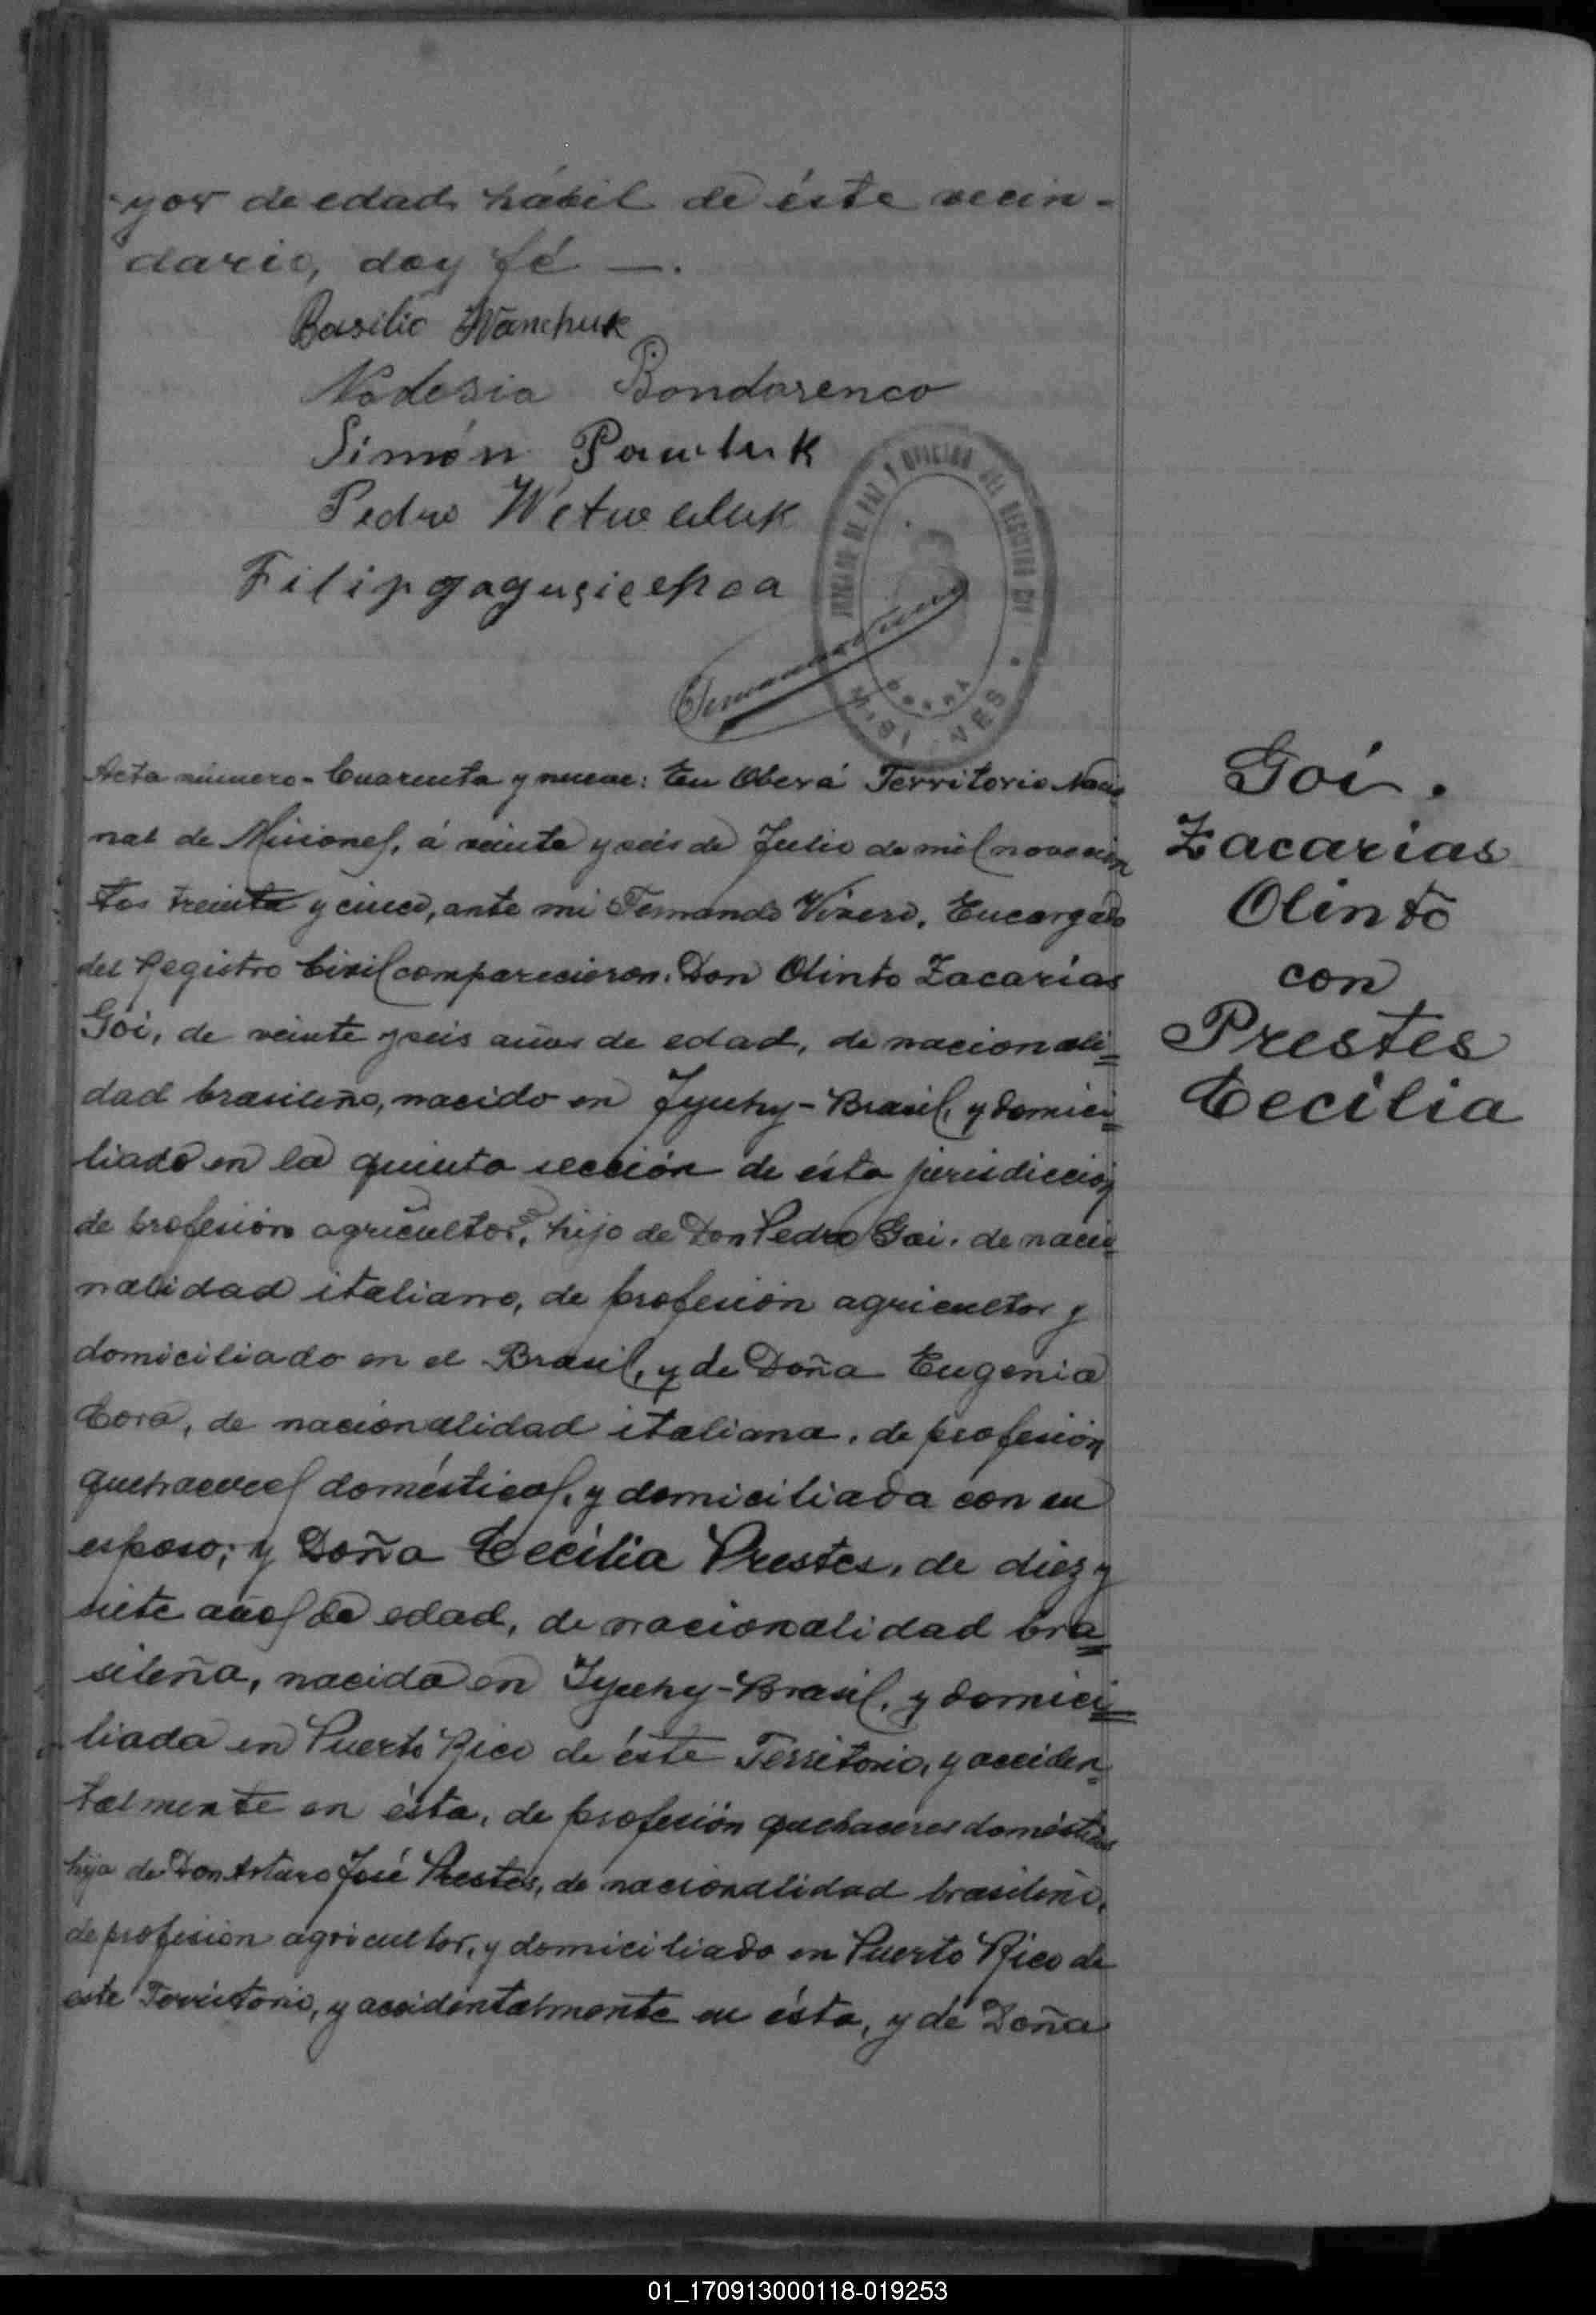 yor de edad, hábil de éste vecin-
dario, doy fé —.
Basilio Iwanchuk
Nadesia Bondarenco
Simón Pawluk
Pedro
Filip
JUZGADO DE PAZ Y OFICINA DEL REGISTRO CIVIL
OBERA
MISIONES
Acta número - Cuarenta y nueve: En Oberá Territorio Nacio
nal de Misiones, á veinte y seis de Julio de mil novecien
tos treinta y cinco, ante mi Fernando Vivero, Encargado
del Registro Civil comparecieron: Don Olinto Zacarías
Goi, de veinte y seis años de edad, de nacionali=
dad brasileño, nacido en Jyuhy - Brasil, y domici=
liado en la quinta sección de ésta jurisdicción
de profesión agricultor, hijo de Don Pedro Goi, de nacio
nalidad italiano, de profesión agricultor y
domiciliado en el Brasil, y de Doña Eugenia
Cora, de nacionalidad italiana, de profesión
quehaceres domésticos, y domiciliada con su
esposo; y Doña Cecilia Prestes, de diez y
siete años de edad, de nacionalidad bra=
sileña, nacida en Jyuhy - Brasil, y domici=
liada en Puerto Rico de éste Territorio, y acciden
talmente en ésta, de profesión quehaceres domésticos
hija de Don Arturo José Prestes, de nacionalidad brasileño,
de profesión agricultor, y domiciliado en Puerto Rico de
este Territorio, y accidentalmente en ésta, y de Doña
Goi.
Zacarías
Olinto
con
Prestes
Cecilia
01_170913000118-019253